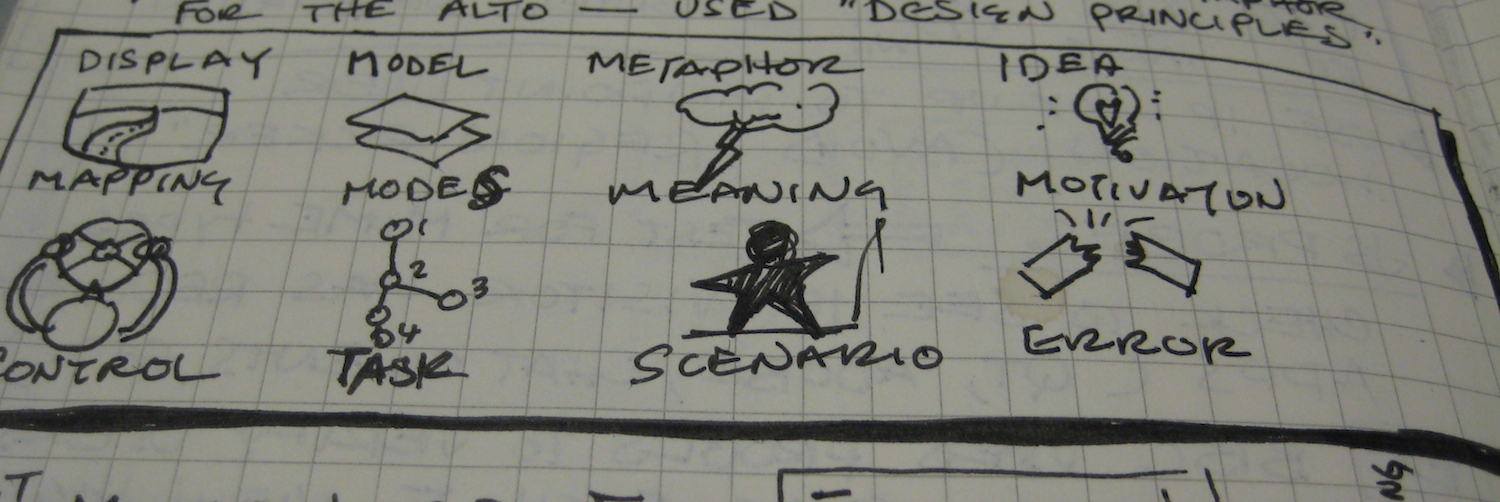 FOR THE ALTO — USED "DESIGN PRINCIPLES".
DISPLAY MODEL METAPHOR IDEA
MAPPING MODES MEANING MOTIVATION
1
2
3
4
CONTROL TASK SCENARIO ERROR